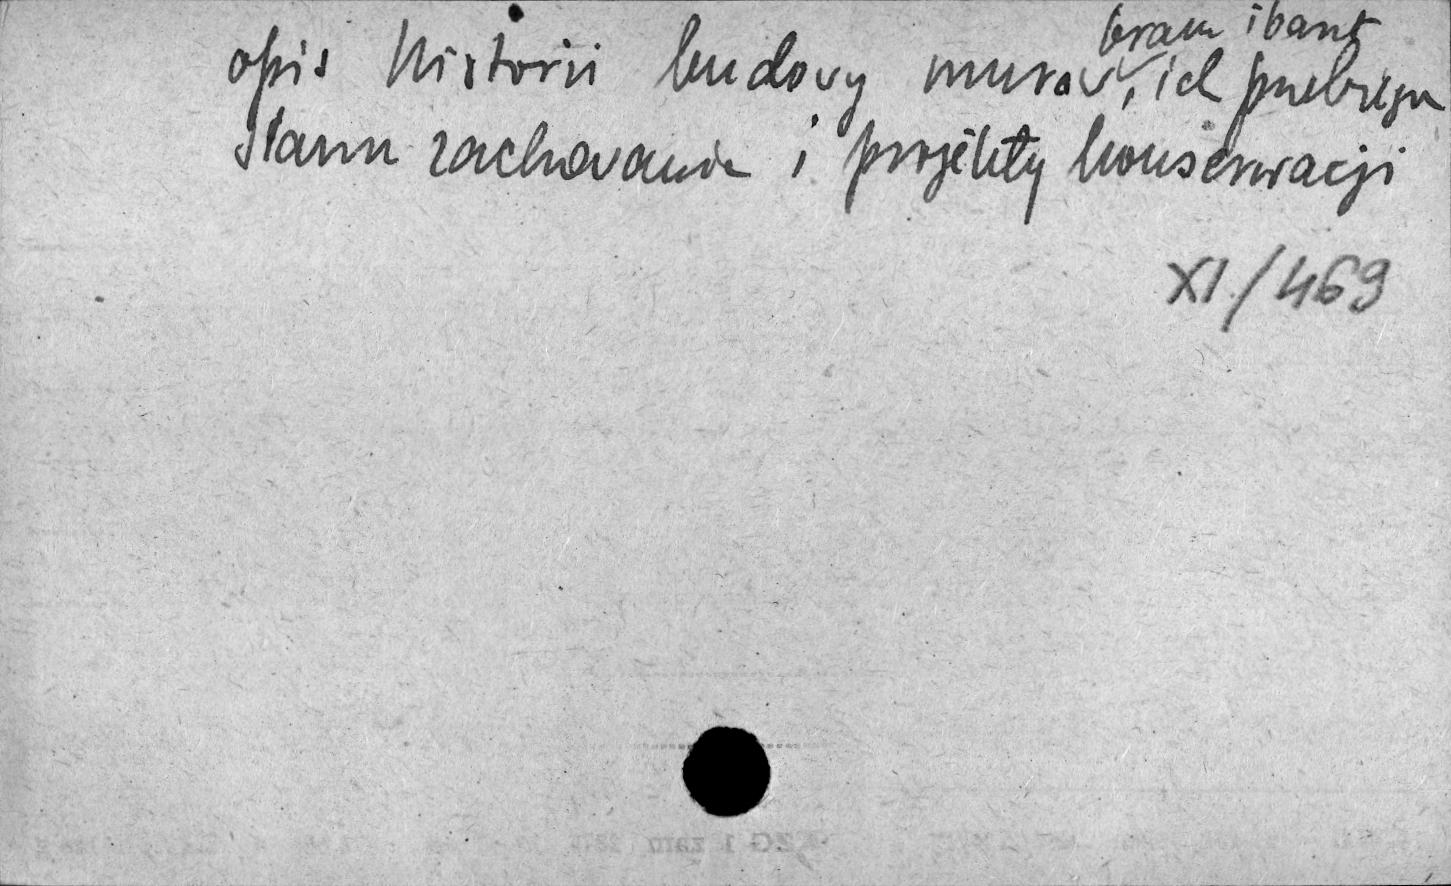 bram i baszt
opis historii budowy murów, ich przebiegu
stanu zachowania i projekty konserwacji
XI/469